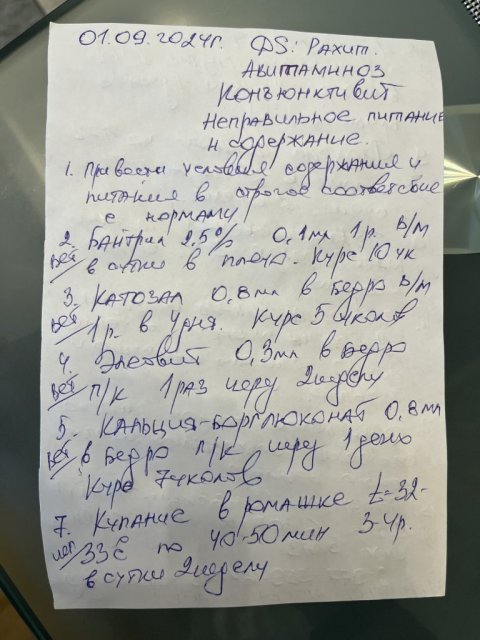 01.09.2024г. DS: Рахит.
Авитаминоз
Конъюнктивит
Неправильное питание
и содержание.
1. Привести условия содержания и
питания в строгое соответствие
с нормами
2. Байтрил 2,5% 0,1мл 1р. В/М
вет в сутки в плечо. Курс 10 ук
3. Катозал 0,8мл в бедро В/М
вет 1р. в 4 дня. Курс 5 уколов
4. Элеовит 0,3мл в бедро
вет п/к 1 раз через 2 недели
5. Кальция-борглюконат 0,8мл
вет в бедро п/к через 1 день
Курс 7 уколов
7. Купание в ромашке t=32-
33°C по 40-50мин 3-4р.
в сутки 2 недели